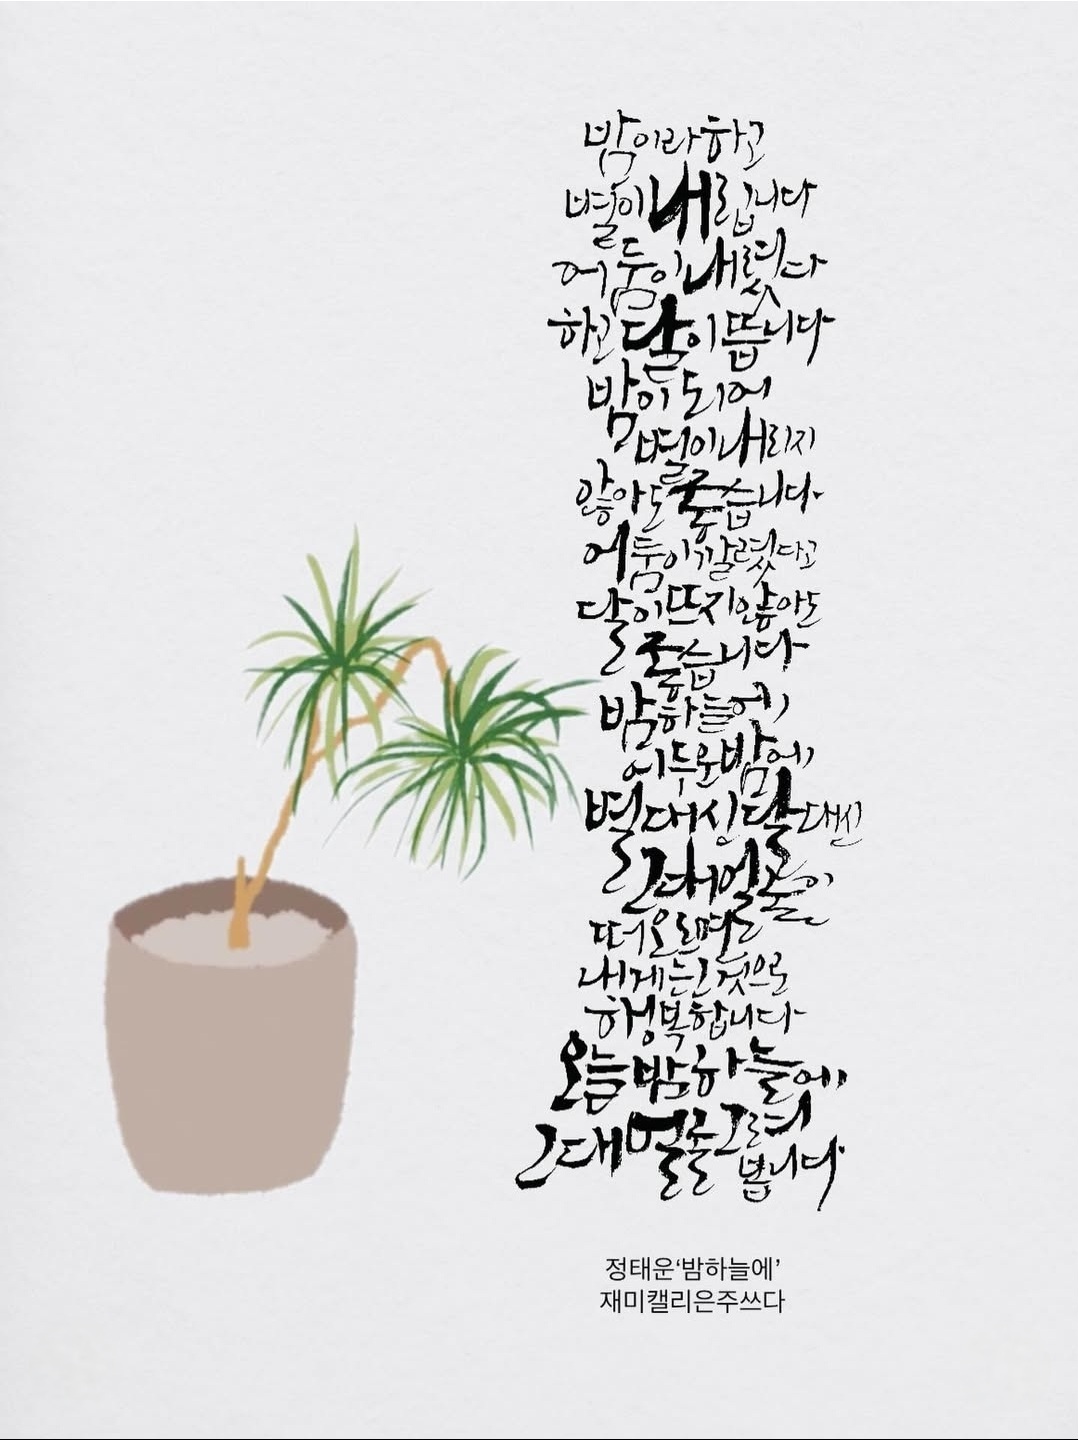 밤이라 하고
별이 내립니다
어둠이 내렸다
하고 달이 뜹니다
밤이 되어
별이 내리지
않아도 좋습니다
어둠이 깔렸다고
달이 뜨지 않아도
좋습니다
밤하늘에,
어두운 밤에,
별 대신 달 대신
그대 얼굴이
떠오르면
내게는 그것으로
행복합니다
오늘 밤하늘에,
그대 얼굴 그려
봅니다
정태운‘밤하늘에’
재미캘리은주쓰다